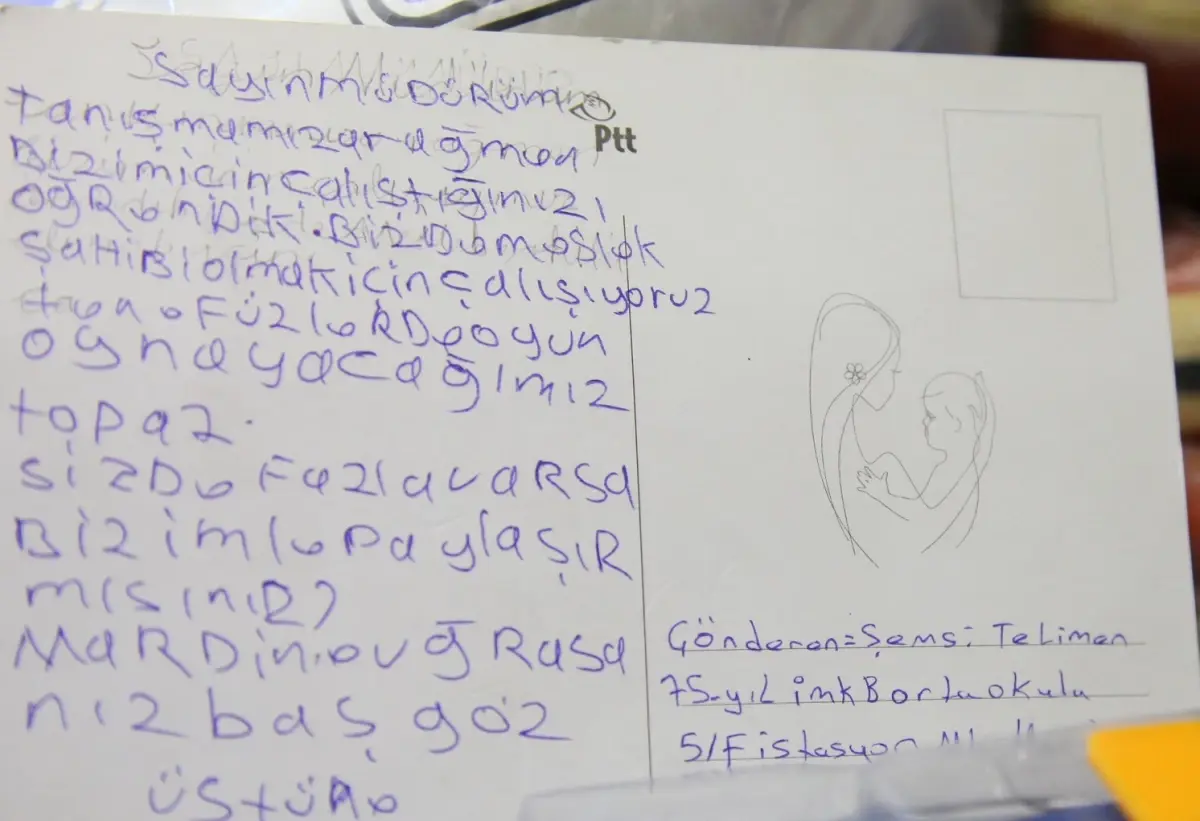 Sayın MÜDÜRÜm
Ptt
tanışmamıza rağmen
Bizim için çalıştığınızı
öğRenDik. Biz De meslek
ŞaHiBi olmak için çalışıyoruz
teneFüzleRDe oyun
oynayacağımız
top az.
sizDe Fazla vaRsa
Bizimle PaylaşıR
mısınız?
MaRDin'e uğRasa
nız baş göz
üstüne
Gönderen = Şemsi Teliman
75.yıl imkB ortaokulu
5/F istasyon